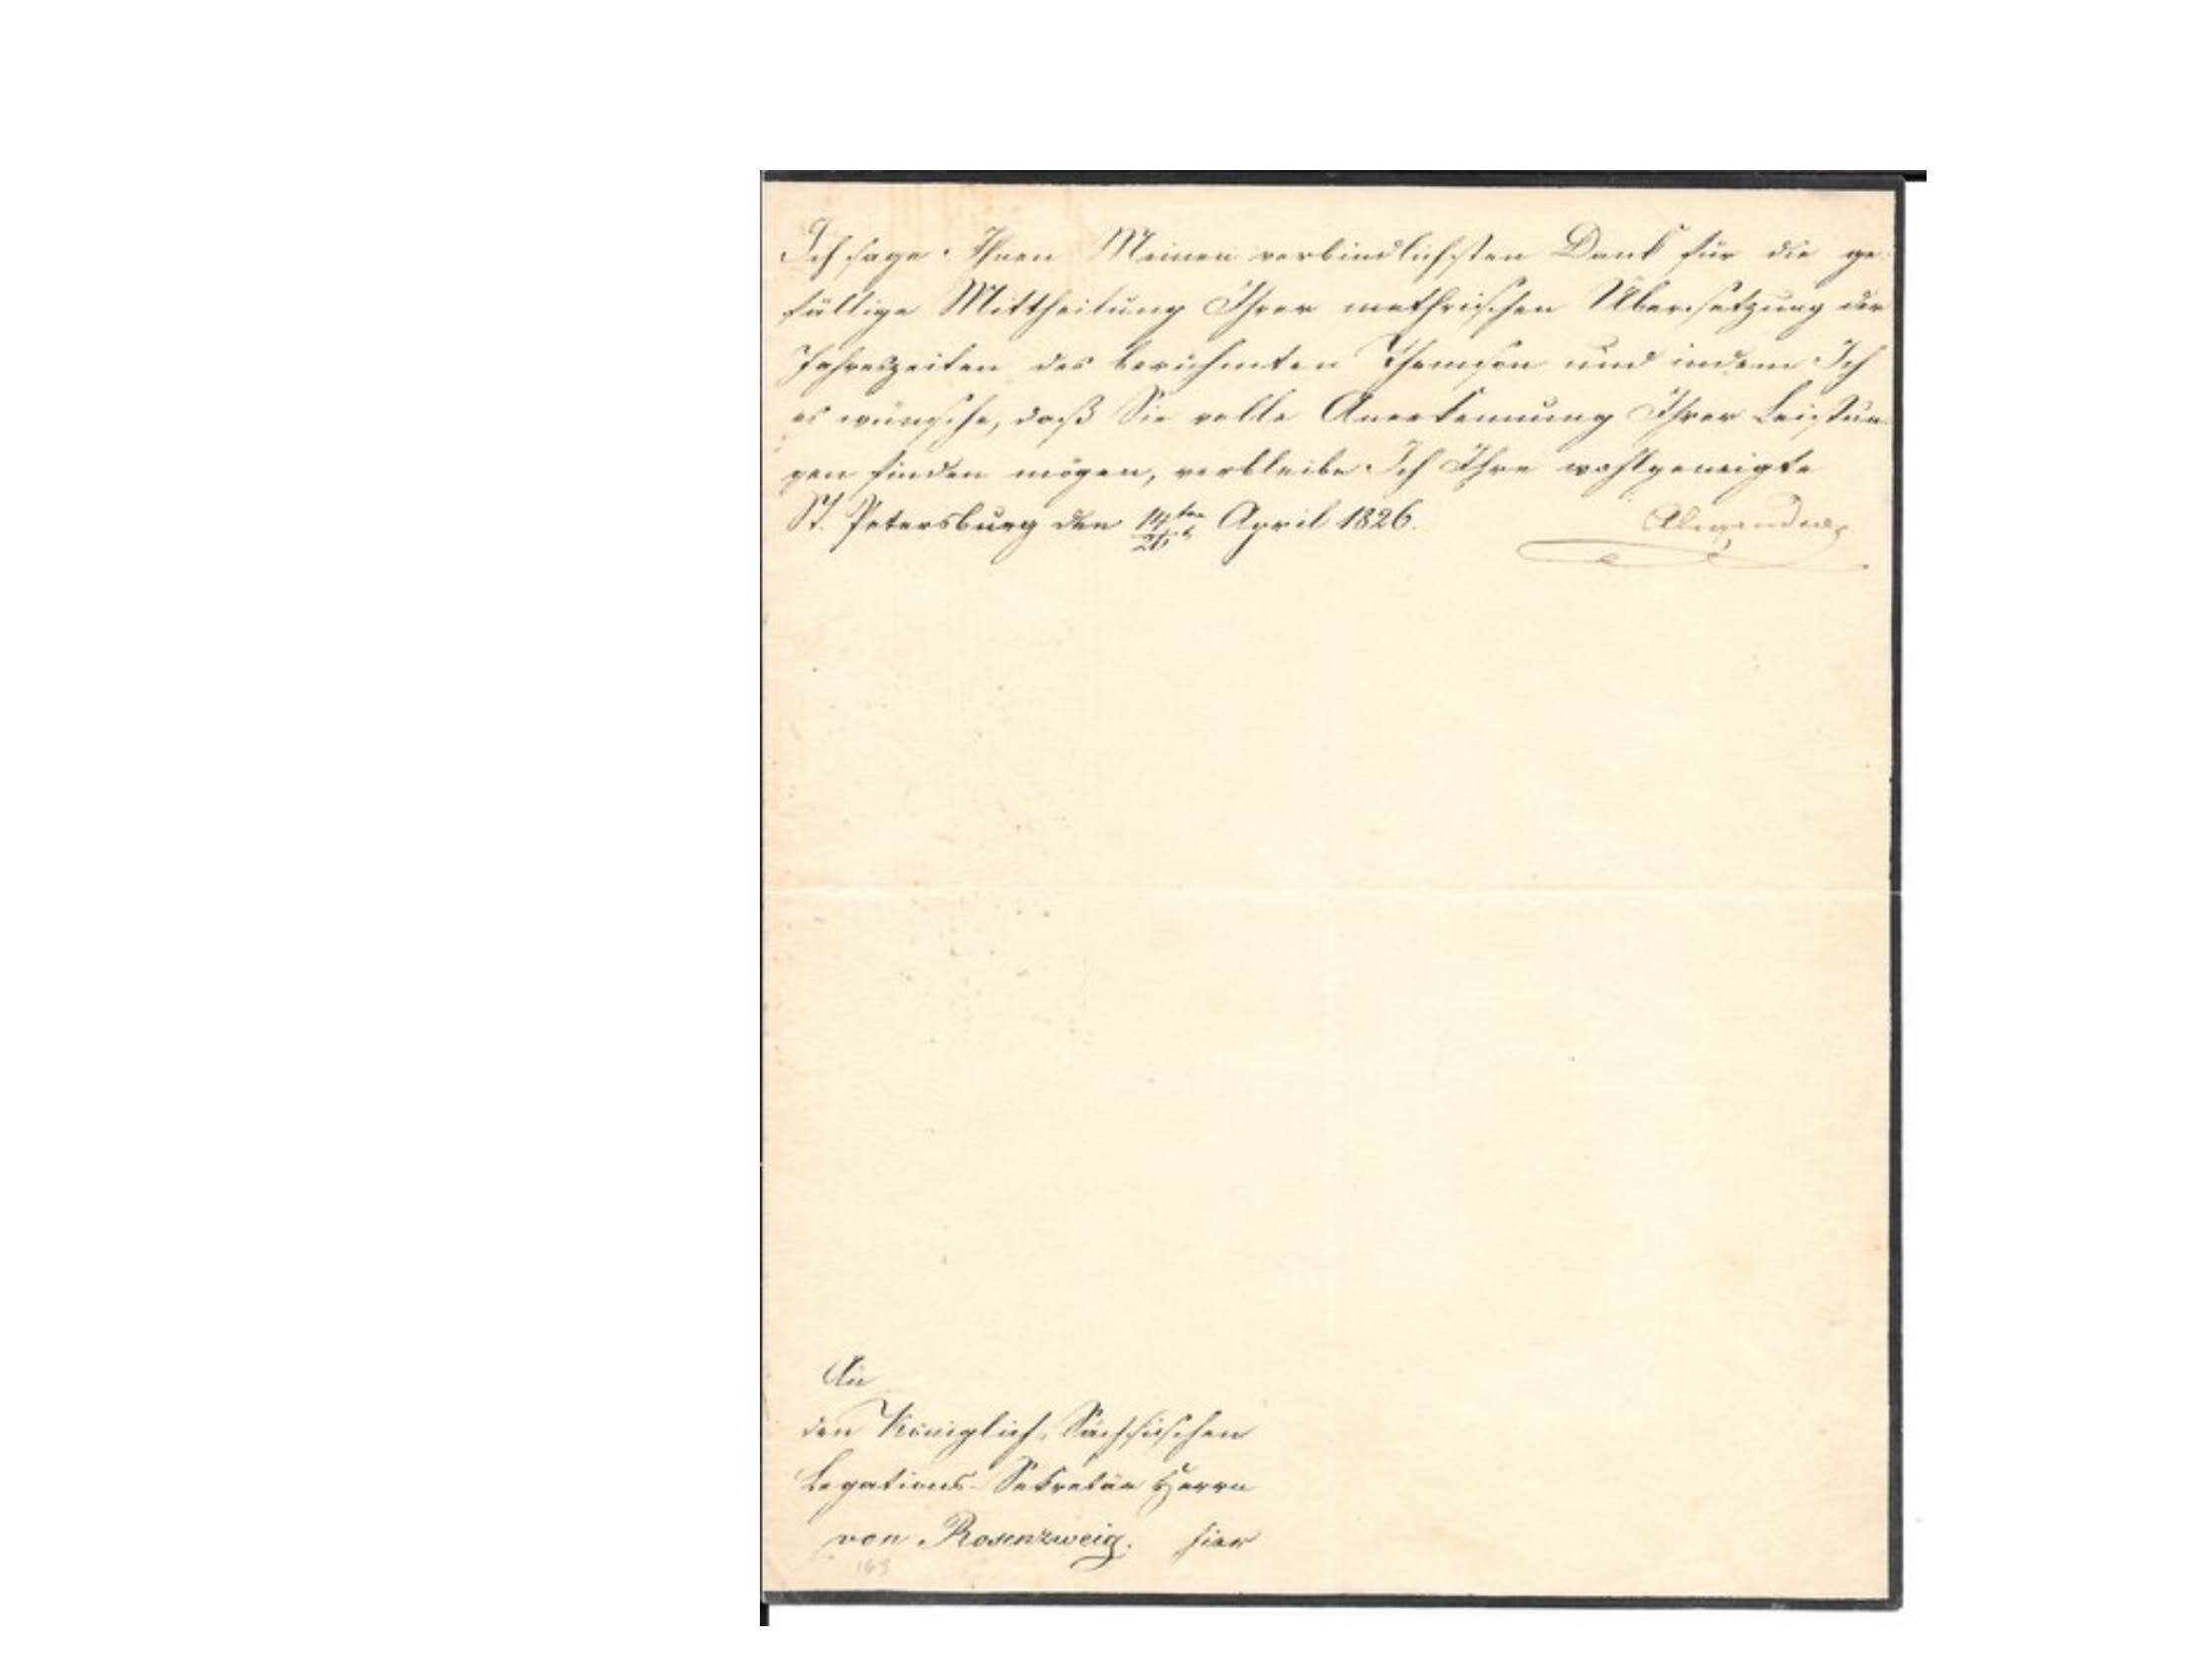 Ich sage Ihnen Meinen verbindlichsten Dank für die ge-
fällige Mittheilung Ihrer methrischen Übersetzung der
Jahreszeiten des berühmten Thomson und indem Ich
es wünsche, daß Sie volle Anerkennung Ihrer Leistun
gen finden mögen, verbleibe Ich Ihre wohlgeneigte
St. Petersburg den 14ten/26 April 1826. Alexandra
An
den Königlich-Sächsischen
Legations-Sekretär Herrn
von Rosenzweig. hier
163